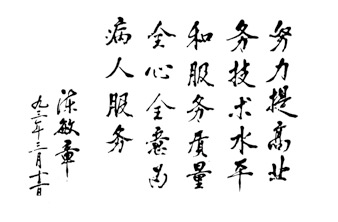 努力提高业
务技术水平
和服务质量
全心全意为
病人服务
陈敏章
九三年三月